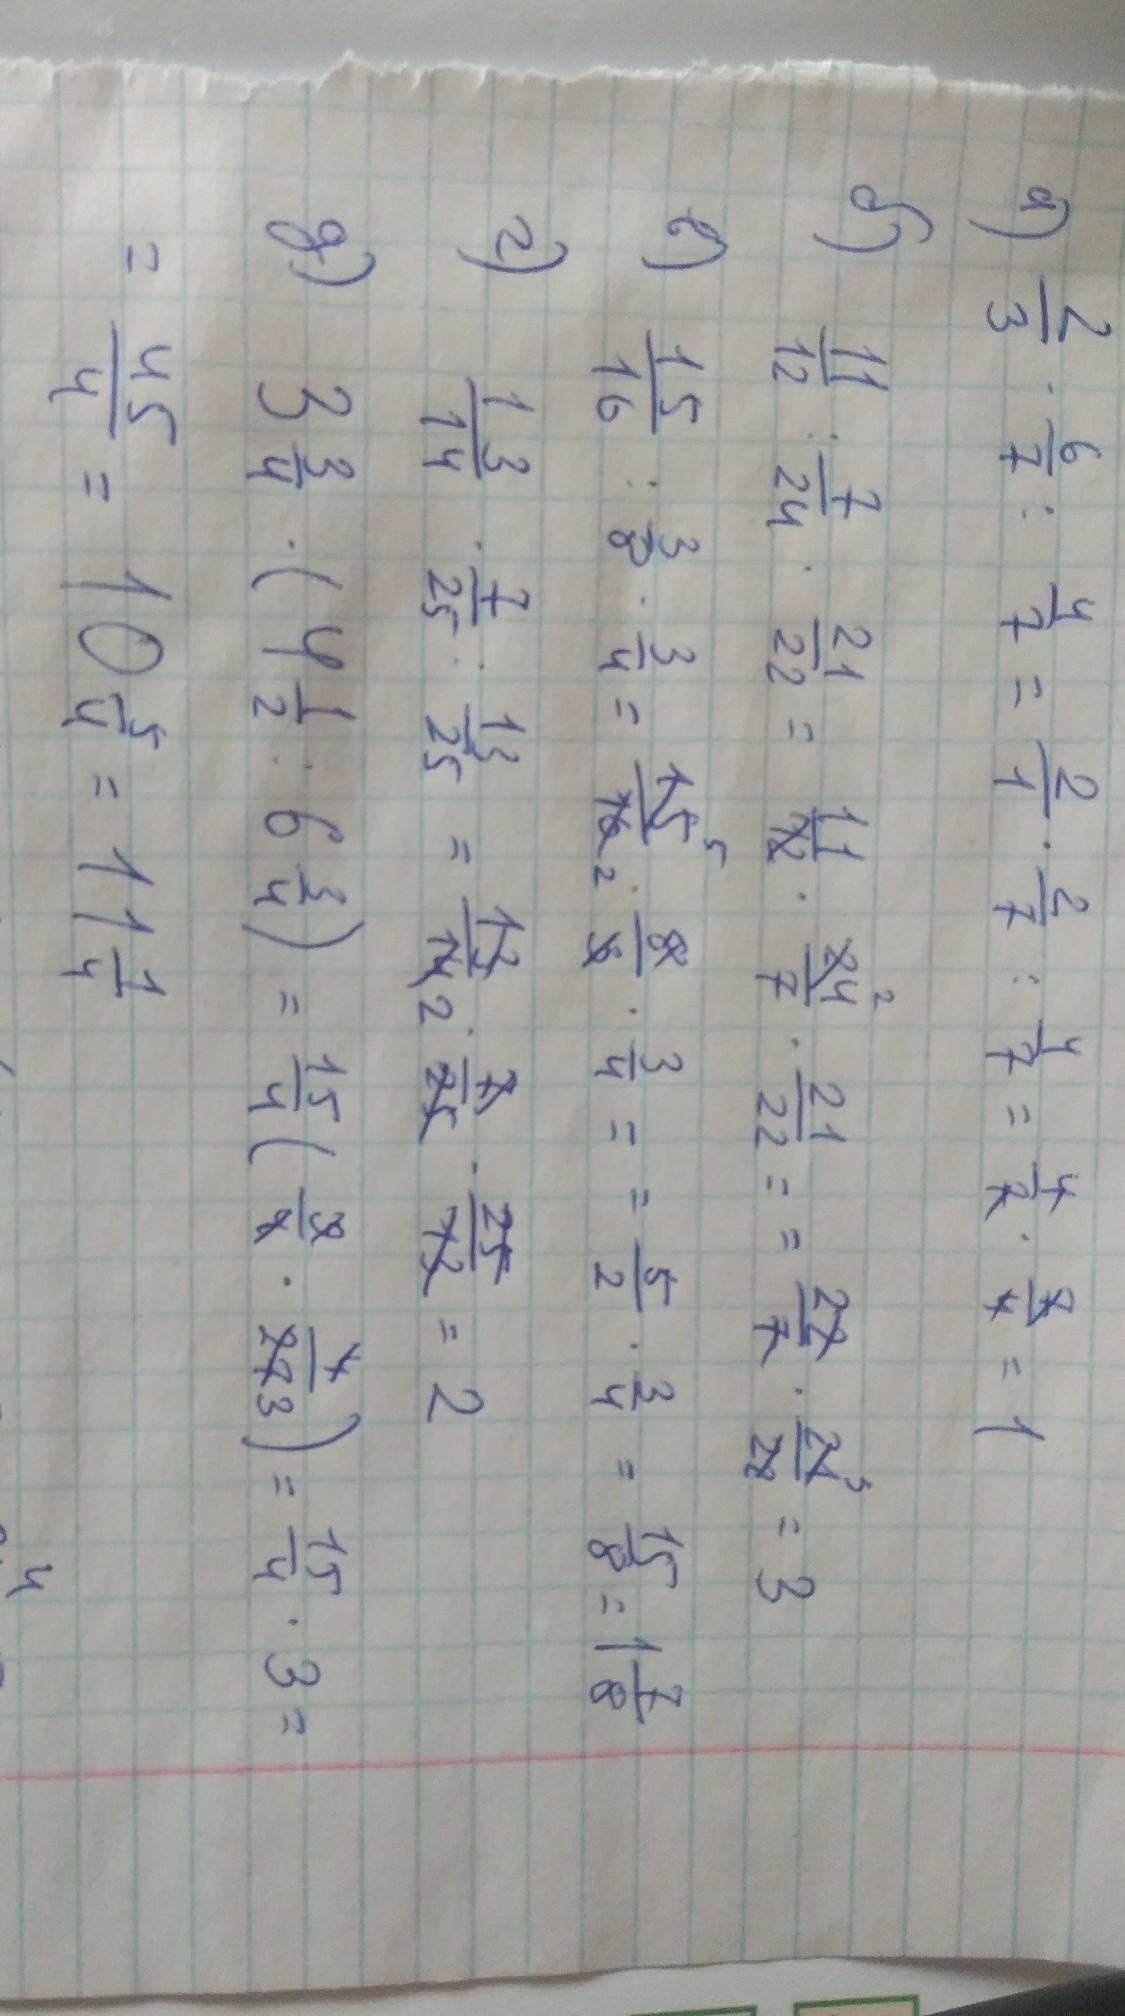 а) 2/3 · 6/7 : 4/7 = 2/1 · 2/7 : 4/7 = 4/7 · 7/4 = 1
б) 11/12 : 7/24 · 21/22 = 11/12 · 24/7 2 · 21/22 = = 22/7 · 21/22 3 = 3
в) 15/16 : 3/8 · 3/4 = 15/16 5 2 · 8/3 · 3/4 = = 5/2 · 3/4 = 15/8 = 1 7/8
г) 13/14 · 7/25 : 13/25 = 13/14 2 · 7/25 · 25/13 = 2
д) 3 3/4 · (4 1/2 : 6 3/4) = 15/4 ( 9/2 · 4/27 3 ) = 15/4 · 3 =
= 45/4 = 10 5/4 = 11 1/4
4